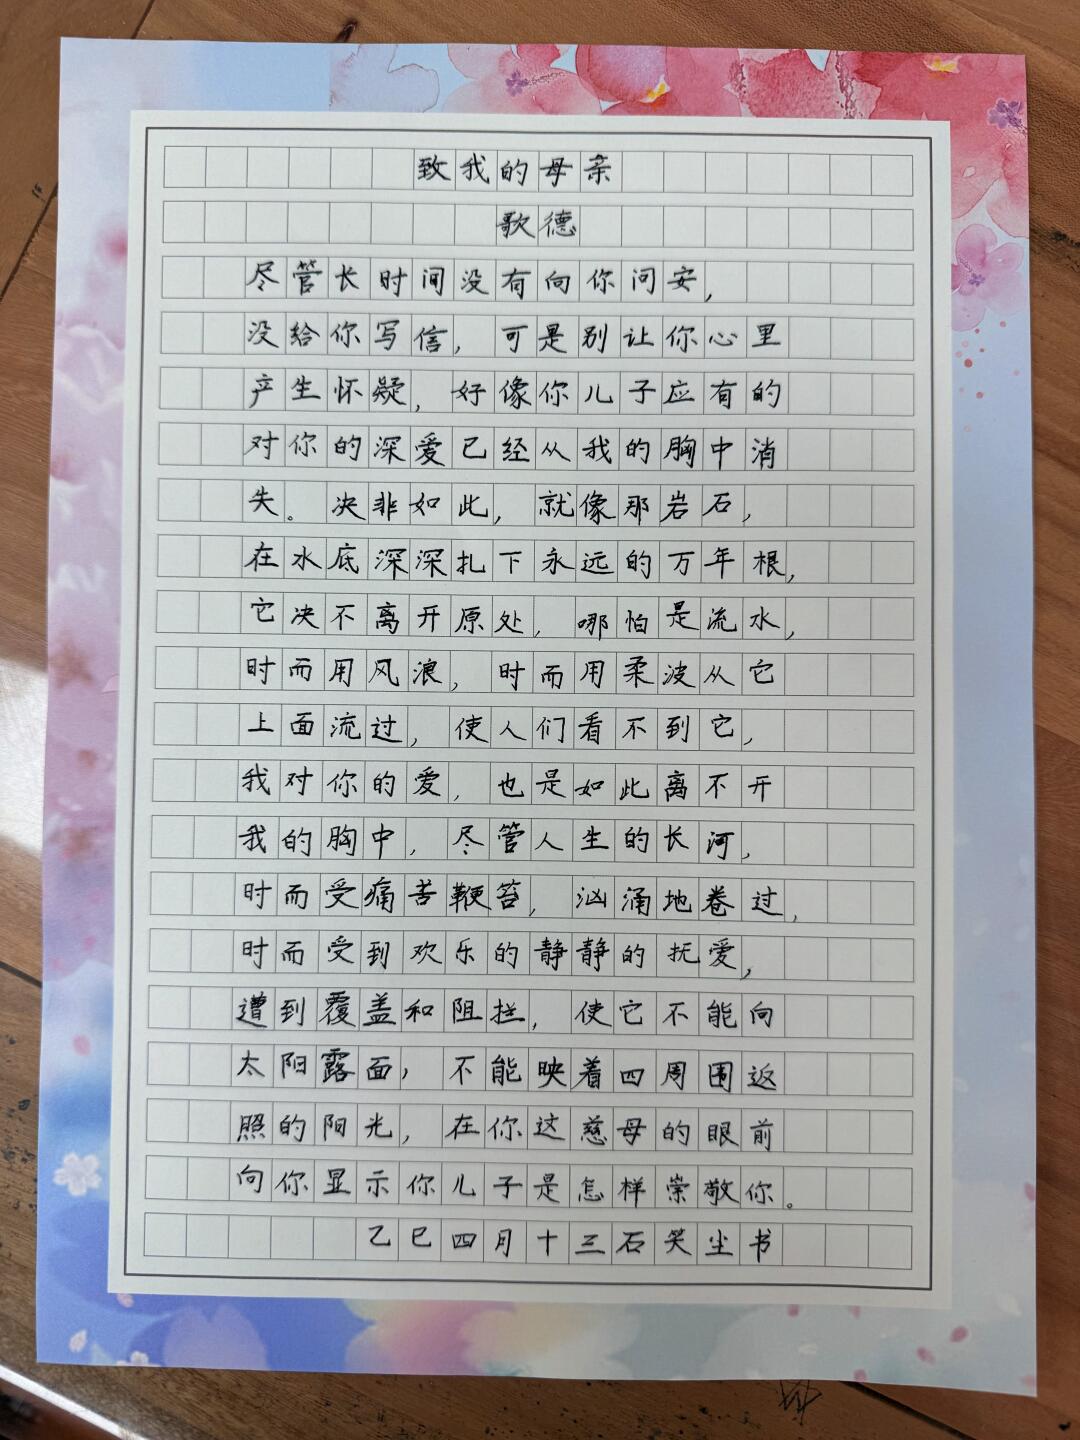 致我的母亲
歌德
尽管长时间没有向你问安，
没给你写信，可是别让你心里
产生怀疑，好像你儿子应有的
对你的深爱已经从我的胸中消
失。决非如此，就像那岩石，
在水底深深扎下永远的万年根，
它决不离开原处，哪怕是流水，
时而用风浪，时而用柔波从它
上面流过，使人们看不到它，
我对你的爱，也是如此离不开
我的胸中，尽管人生的长河，
时而受痛苦鞭笞，汹涌地卷过，
时而受到欢乐的静静的抚爱，
遭到覆盖和阻拦，使它不能向
太阳露面，不能映着四周围返
照的阳光，在你这慈母的眼前
向你显示你儿子是怎样崇敬你。
乙巳四月十三石笑尘书